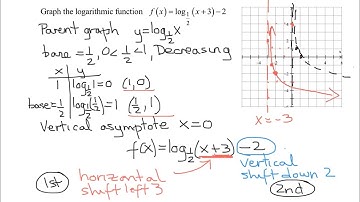 Graph the logarithmic function f(x) = log_{1/2} (x+3) − 2
Parent graph y = log_{1/2} x
base = 1/2, 0 < 1/2 < 1, Decreasing
x | y
1 | log_{1/2} 1 = 0 (1, 0)
base = 1/2 | log_{1/2} (1/2) = 1 (1/2, 1)
Vertical asymptote x = 0
x = -3
f(x) = log_{1/2} (x+3) − 2
1st horizontal shift left 3
vertical shift down 2
2nd